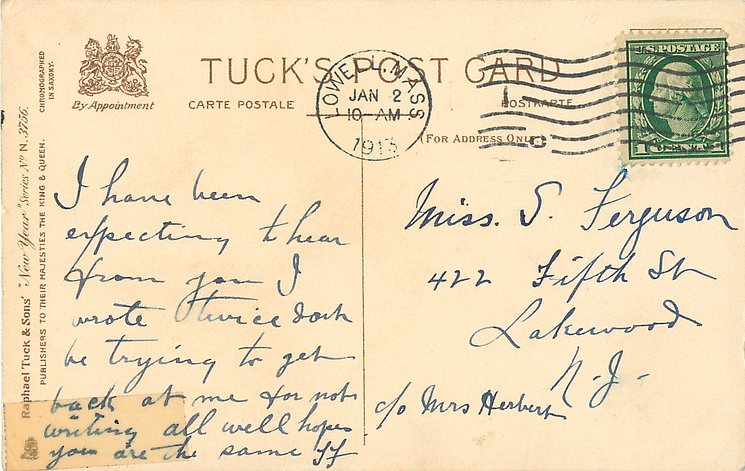 TUCK'S POST CARD
By Appointment
CARTE POSTALE
POSTKARTE
(FOR ADDRESS ONLY)
CHROMOGRAPHED
IN SAXONY.
Raphael Tuck & Sons' "New Year" Series No N. 3756.
PUBLISHERS TO THEIR MAJESTIES THE KING & QUEEN.
LOWELL, MASS
JAN 2
10-AM
1913
U.S. POSTAGE
I have been
expecting to hear
from you I
wrote twice dont
be trying to get
back at me for not
writing all well hope
you are the same
Miss. S. Ferguson
422 Fifth St
Lakewood
N.J.
c/o Mrs Herbert